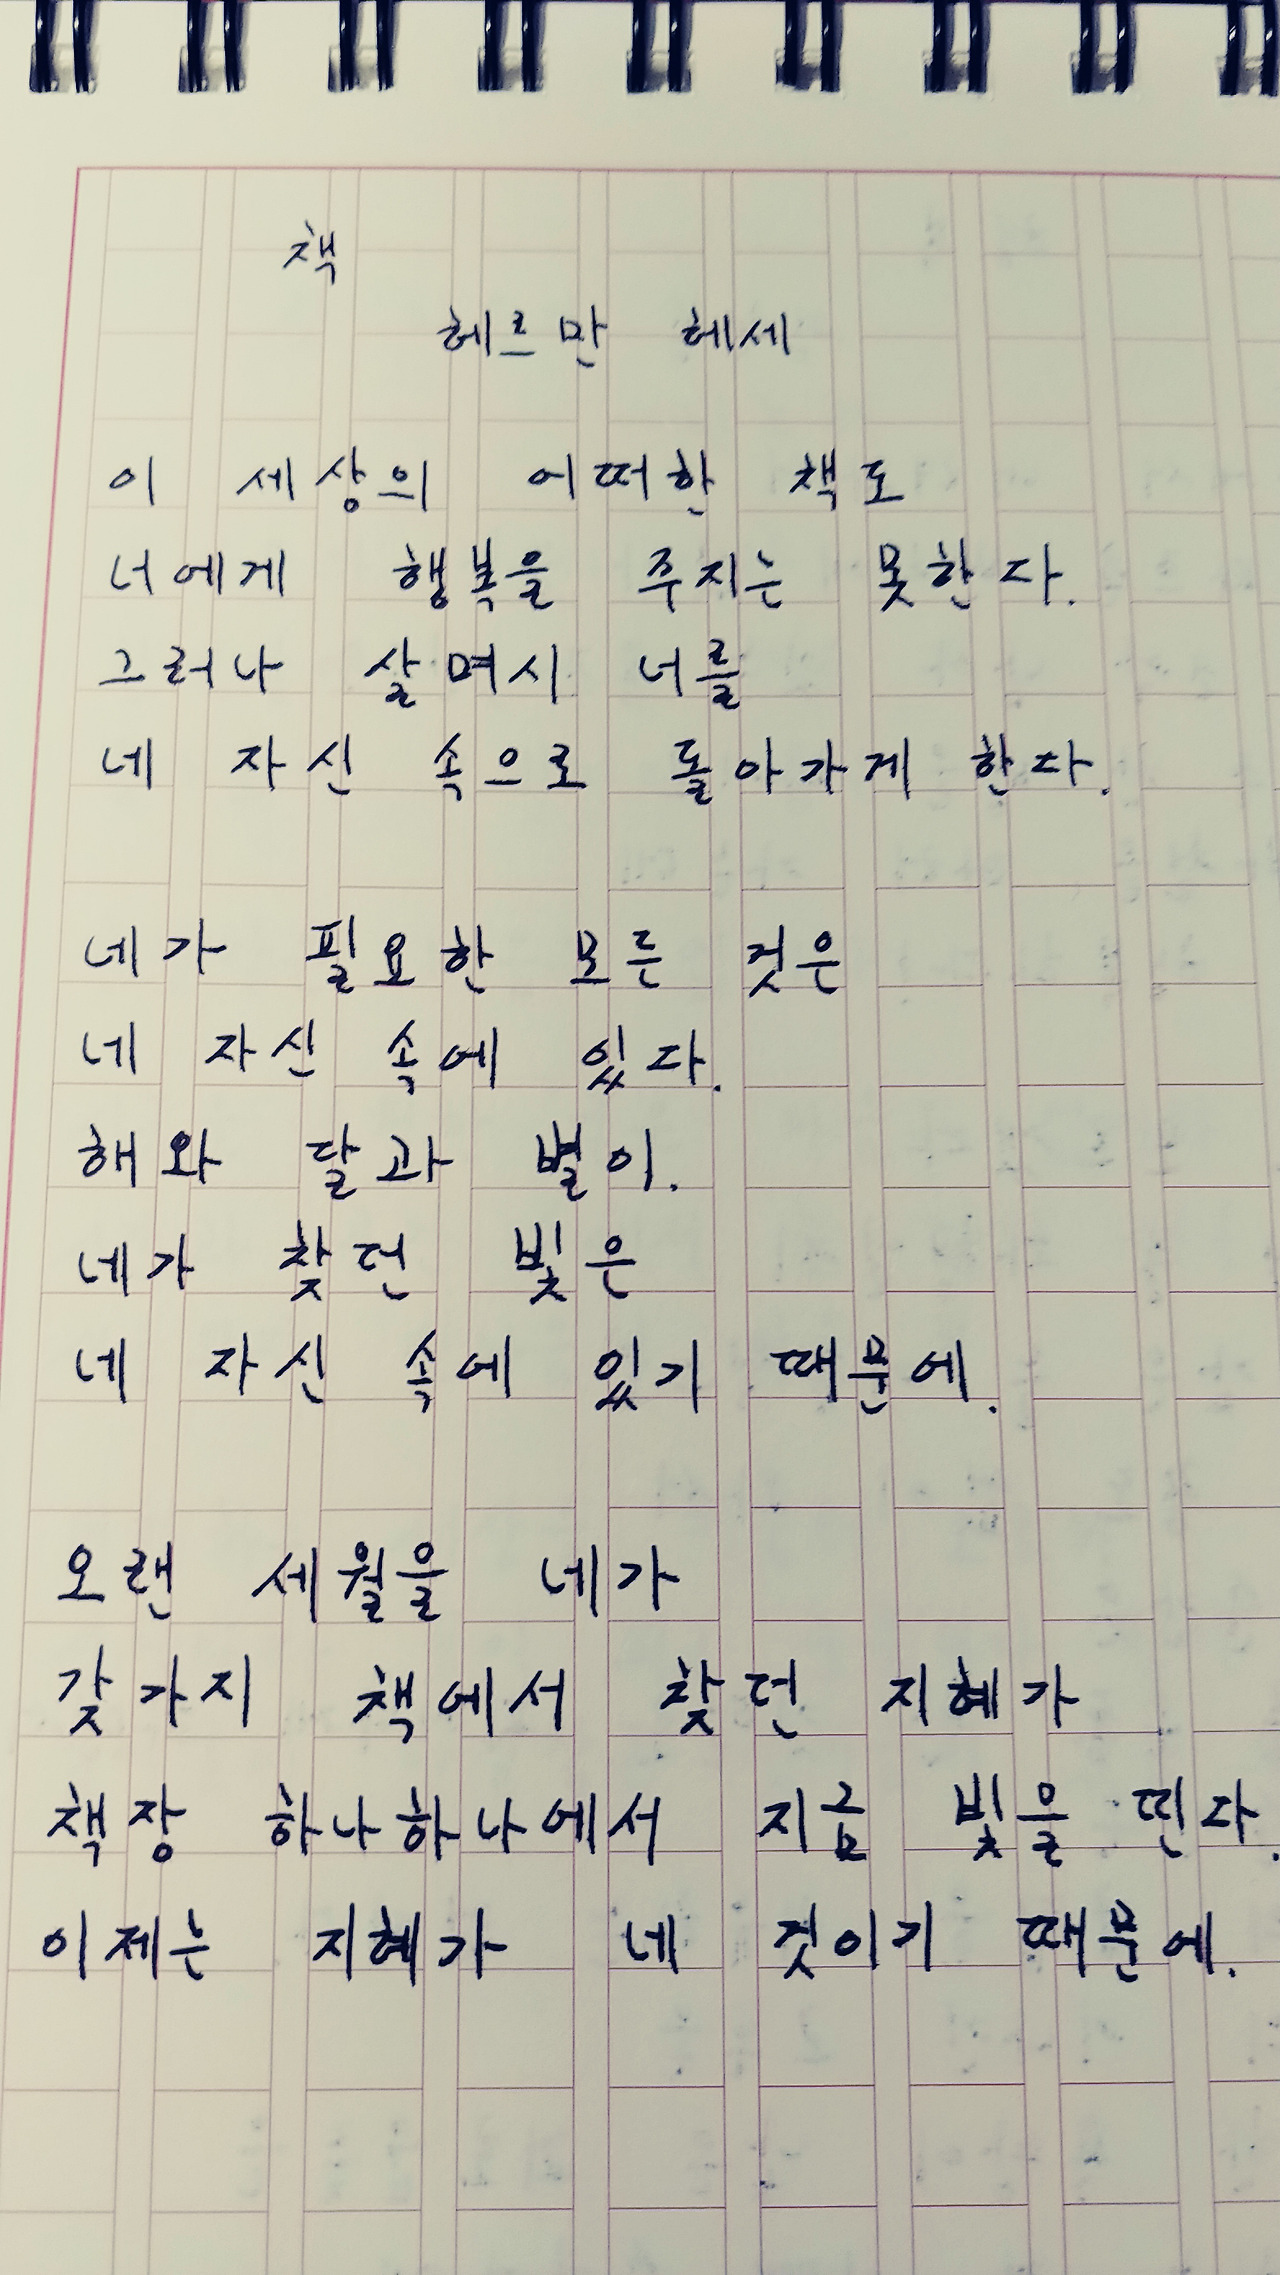 책
헤르만 헤세
이 세상의 어떠한 책도
너에게 행복을 주지는 못한다.
그러나 살며시 너를
네 자신 속으로 돌아가게 한다.
네가 필요한 모든 것은
네 자신 속에 있다.
해와 달과 별이.
네가 찾던 빛은
네 자신 속에 있기 때문에.
오랜 세월을 네가
갖가지 책에서 찾던 지혜가
책장 하나하나에서 지금 빛을 띤다.
이제는 지혜가 네 것이기 때문에.